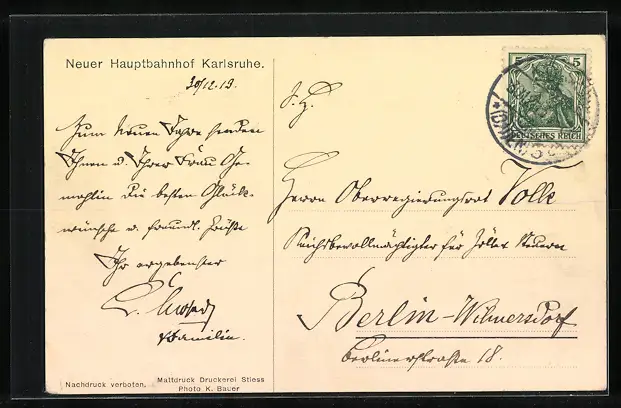 Neuer Hauptbahnhof Karlsruhe.
30/12.19.
Zum neuen Jahre senden
Ihnen u. Ihrer Frau Ge-
mahlin die besten Glück-
wünsche u. freundl. Grüße
Ihr ergebenster
Familie.
Nachdruck verboten.
Mattdruck Druckerei Stiess
Photo K. Bauer
5 5
DEUTSCHES REICH
S. H.
Herrn Oberregierungsrat Volle
Reichsbevollmächtigter für Zölle u. Steuern
Berlin-Wilmersdorf
Berlinerstraße 18.